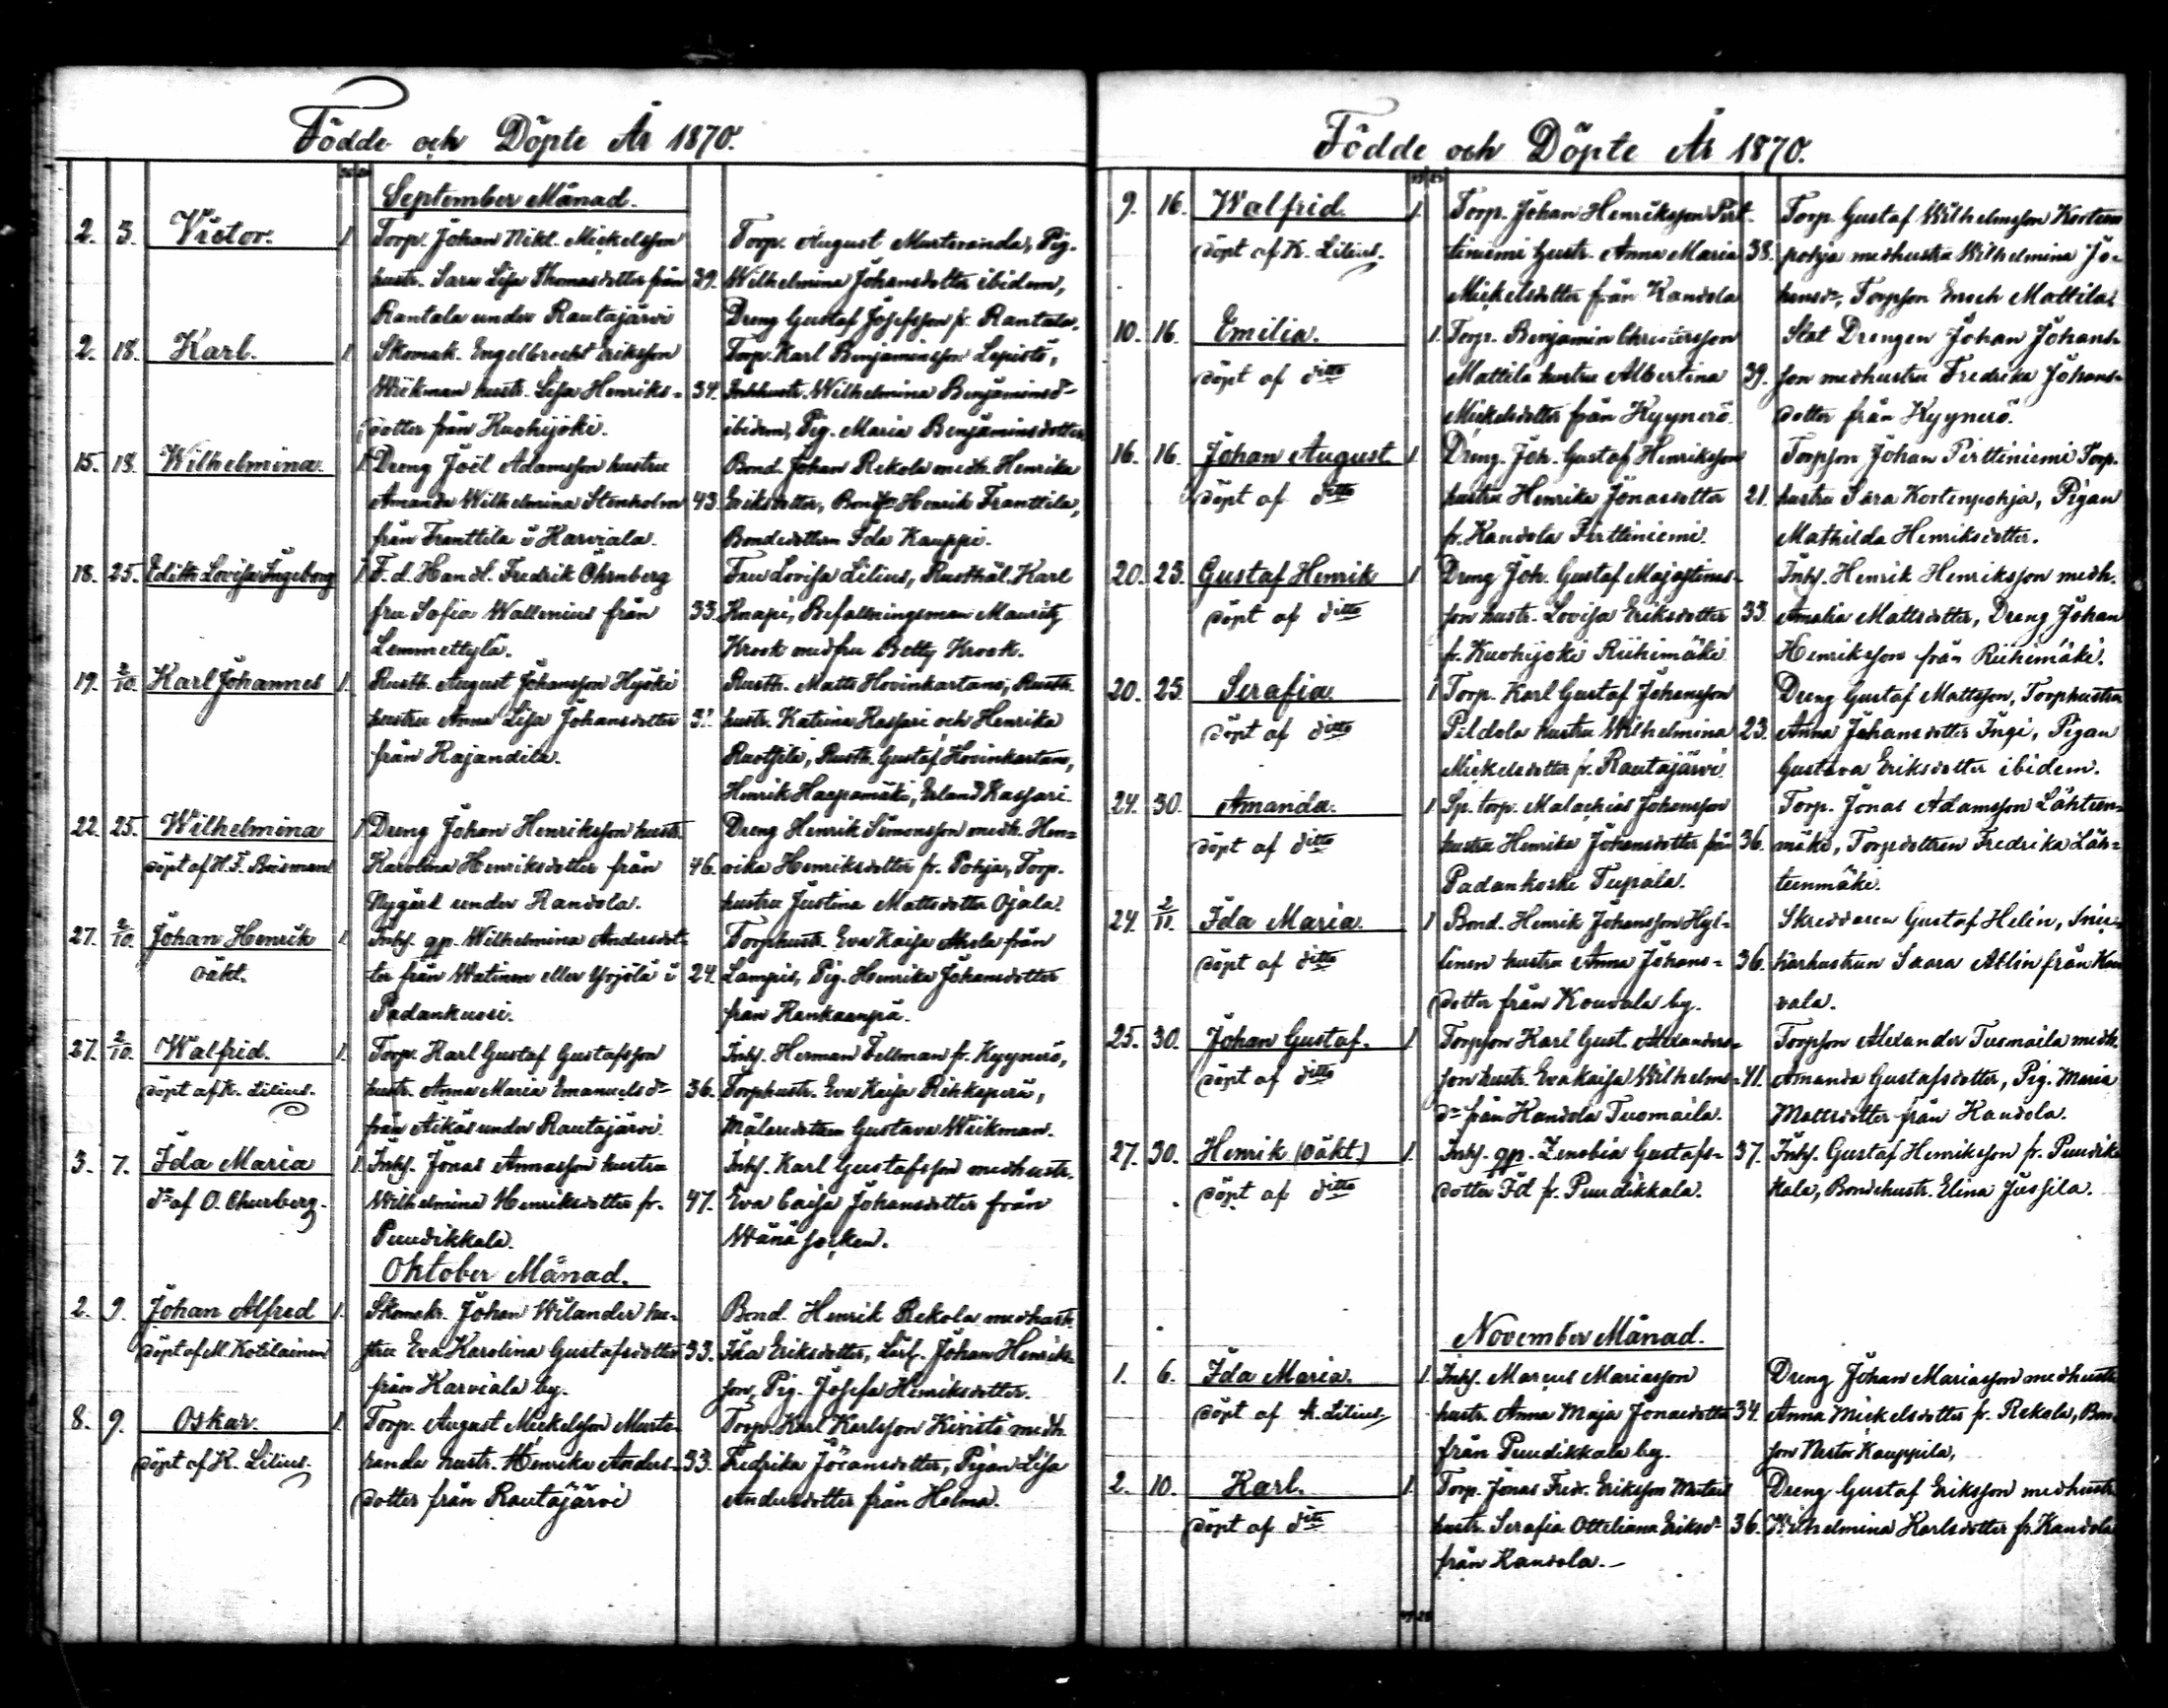 Födde och Döpte År 1870.
September Månad.
2. 3. Victor. 1 Torp. Johan Nikl. Mickelsson Torp. August Musteranda, Pig.
hustr. Sara Lisa Thomasdotter från 39. Wilhelmina Johansdotter ibidem,
Rantala under Rautajärvi Dreng Gustaf Josefsson fr. Rantala.
2. 18. Karl. 1 Skomak. Engelbrecht Eriksson Torp. Karl Benjaminsson Lepistö,
Wikman hustr. Lisa Henriks- 34. Inhhustr. Wilhelmina Benjaminsdr
dotter från Kuohijoki. ibidem, Pig. Maria Benjaminsdotter
15. 18. Wilhelmina. 1 Dreng Joël Adamsson hustru Bond. Johan Rekola medh. Henrika
Amanda Wilhelmina Stenholm 43. Eriksdotter, Henrik Franttila,
från Franttila i Karviala. Bondedottern Ida Kauppi.
18. 25. Edith Lovisa Ingeborg 1 F.d. Handl. Fredrik Öhrnberg Fru Lovisa Lilius, Rusthål. Karl
fru Sofia Wallenius från 33. Knapi, Befallningsman Mauritz
Lemmettylä. Krook med fru Betty Krook.
19. 2/10. Karl Johannes 1. Rusth. August Johansson Hyöki Rusth. Matts Hovinkartano, Rusth.
hustru Anna Lisa Johansdotter hustr. Katrina Kaspari och Henrika
från Rajandila. Rusth. Gustaf Hovinkartano,
Henrik Haapamäki, Erland Kaspari.
22. 25. Wilhelmina 1 Dreng Johan Henriksson hustr. Dreng Henrik Simonsson medh. Hen-
döpt af H. F. Karolina Henriksdotter från 46. rika Henriksdotter fr. Pohja, Torp.
Nygård under Kandola. hustru Justina Mattsdotter Ojala.
27. 2/10. Johan Henrik 1. Inhs. qp. Wilhelmina Andersdot- Torphustr. Eva Kaisa Ahola från
oäkt. ter från Watinen eller Yrjölä i 24. Lampis, Pig. Henrika Johansdotter
Padankuosi. från Kankaanpä.
27. 2/10. Walfrid. 1. Torp. Karl Gustaf Gustafsson Inhs. Herman Fellman fr. Kyynerö,
döpt af K. Lilius. hustr. Anna Maria Emanuelsdr 36. Torphustr. Eva Kaisa Rihkaperä,
från Äikäs under Rautajärvi. Målaredottern Gustava Wikman.
3. 7. Ida Maria 1 Inhs. Jonas Annasson hustru Inhs. Karl Gustafsson medhustr.
dr af O. Churberg. Wilhelmina Henriksdotter fr. 47. Eva Caisa Johansdotter från
Puudikkala. Wånå socken.
Oktober Månad.
2. 9. Johan Alfred 1. Skomakr. Johan Wilander hu- Bond. Henrik Rekola medhustr.
döpt af M. Kotilainen stru Eva Karolina Gustafsdotter 33. Ida Eriksdotter, Johan Henriks-
från Karviala by. son, Pig. Josefa Henriksdotter.
8. 9. Oskar. 1. Torp. August Mickelsson Muste- Torp. Karl Karlsson Kivistö medh.
döpt af K. Lilius. randa hustr. Henrika Anders- 33. Fredrika Johansdotter, Pigan Lisa
dotter från Rautajärvi Andersdotter från Holma.
Födde och Döpte År 1870.
9. 16. Walfrid. 1. Torp. Johan Henriksson Pert- Torp. Gustaf Wilhelmsson Korteen
döpt af K. Lilius. tiniemi hustr. Anna Maria 38. pohja medhustru Wilhelmina Jo-
Mickelsdotter från Kandola hansdr, Torpson Enoch Mattila.
10. 16. Emilia. 1. Torp. Benjamin Christersson Stat Drengen Johan Johans-
döpt af ditto Mattila hustru Albertina 39. son medhustru Fredrika Johans-
Mickelsdotter från Kyynerö. dotter från Kyynerö.
16. 16. Johan August 1. Dreng. Joh. Gustaf Henriksson Torpson Johan Pirttiniemi Torp.
döpt af ditto hustru Henrika Jonasdotter 21. hustru Sara Kortenpohja, Pigan
fr. Kandola Pirttiniemi. Mathilda Henriksdotter.
20. 23. Gustaf Henrik 1. Dreng Joh. Gustaf Majastines- Inhs. Henrik Henriksson medh.
döpt af ditto son hustr. Lovisa Eriksdotter 33. Amalia Mattsdotter, Dreng Johan
fr. Kuohijoki Riihimäki Henriksson från Riihimäki.
20. 25. Serafia 1 Torp. Karl Gustaf Johansson Dreng Gustaf Mattsson, Torphustru
döpt af ditto Peldola hustru Wilhelmina 23. Anna Johansdotter Ingi, Pigan
Mickelsdotter fr. Rautajärvi Gustava Eriksdotter ibidem.
24. 30. Amanda. 1 Sp. torp. Malachias Johansson Torp. Jonas Adamsson Lähteen-
döpt af ditto hustru Henrika Johansdotter från 36. mäki, Torpdottren Fredrika Läh-
Padankoski Tupala. teenmäki.
24. 2/11. Ida Maria. 1 Bond. Henrik Johansson Hyl- Skreddaren Gustaf Helén, Snic-
döpt af ditto linen hustru Anna Johans- 36. karhustrun Saara Ahlin från Kou
dotter från Kouvala by. vala.
25. 30. Johan Gustaf. 1 Torpson Karl Gust. Alexanders- Torpson Alexander Tuomaila medh.
döpt af ditto son hustr. Eva Kaisa Wilhelms- 41. Amanda Gustafsdotter, Pig. Maria
dr från Kandola Tuomaila. Mattsdotter från Kandola.
27. 30. Henrik (oäkt) 1. Inhs. qp. Zenobia Gustafs- 37. Inhs. Gustaf Henriksson fr. Puudik
döpt af ditto dotter Id fr. Puudikkala. kala, Bondehustr. Elina Jussila.
November Månad.
1. 6. Ida Maria. 1 Inhs. Marcus Mariasson Dreng Johan Mariasson medhustr
döpt af K. Lilius. hustr. Anna Maja Jonasdotter 34. Anna Mickelsdotter fr. Rekola, Bon.
från Puudikkala by. son Nestor Kauppila,
2. 10. Karl. 1. Torp. Jonas Fredr. Eriksson Dreng Gustaf Eriksson medhustr.
döpt af ditto hustr. Serafia Otteliana Eriksdr 36. Wilhelmina Karlsdotter fr. Kandola
från Kandola.